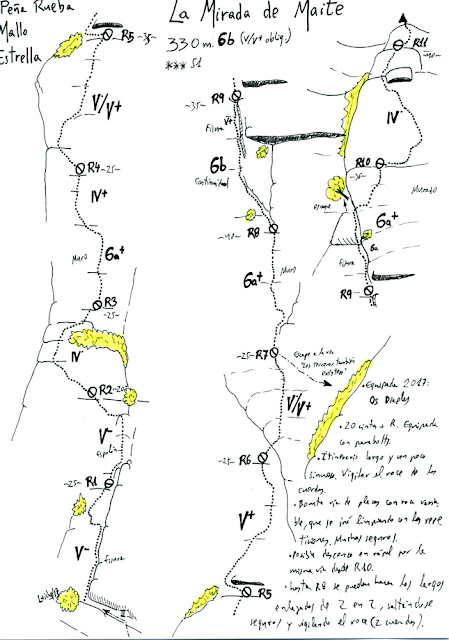 Peña Rueba
Mallo
Estrella
La Mirada de Maite
330 m. 6b (V/V+ oblig.)
*** S1
R5 -35-
V/V+
R4 -25-
IV+
Muro
6a+
R3
-25-
IV
R2 -20-
V-
Espolón
-25- R1
V-
fisura
R9
-35-
V+
Fisura
6b
Continuidad
R8
-40-
6a+
Muro
-25- R7
Escape a la vía
"Los terceros también
existen"
V/V+
R6
-25-
V+
R5
R11
-40-
IV
R10
-35-
Murazo
escape
6a+
6a
Fisura
R9
• Equipada 2017:
Os Diaples
• 20 cintas + R. Equipada
con parabolts.
• Itinerario largo y un poco
sinuoso. Vigilar el roce de las
cuerdas.
• Bonita vía de placas con roca varia
ble, que se irá limpiando con las repe
ticiones. Muchos seguros.
• Posible descenso en rápel por la
misma vía desde R10.
• hasta R8 se pueden hacer los largos
enlazados de 2 en 2, saltándose
seguros y vigilando el roce (2 cuerdas).